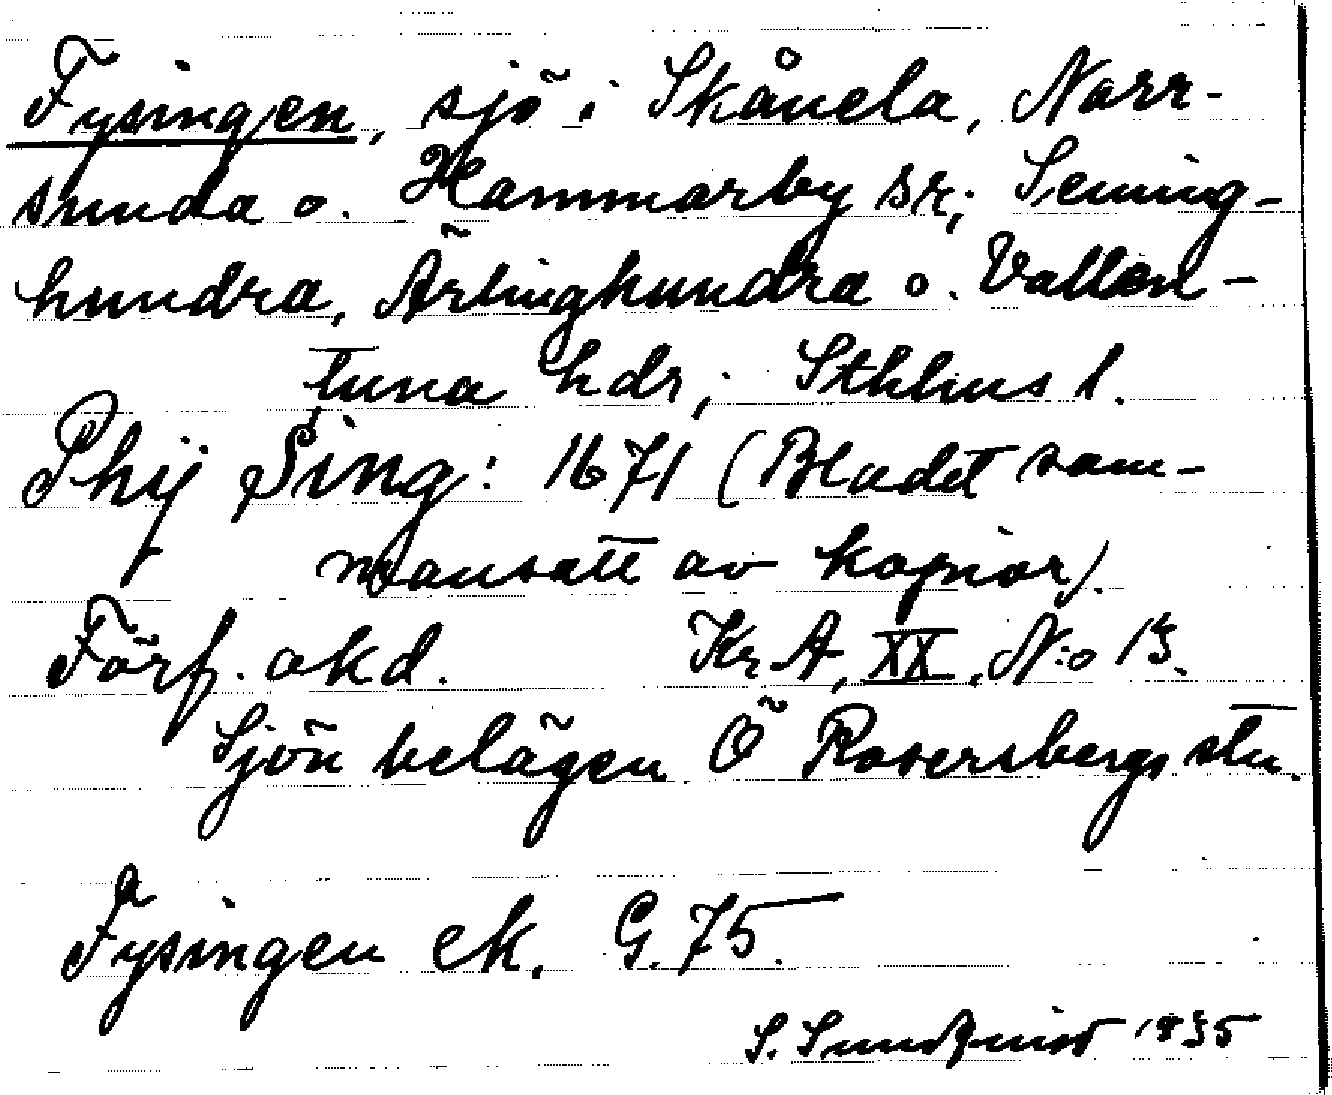 Fysingen, sjö i Skånela, Norr-
sunda o. Hammarby sr; Seming-
hundra, Ärlinghundra o. Vallen-
tuna hdr; Sthlms l.
Phij Sing: 1671 (Bladet sam-
mansatt av kopior).
Förf. okd. Kr.A, XX, N:o 13.
Sjön belägen Ö Rosersbergs stn.
Fysingen ek. G.75.
S. Sundqvist 1935